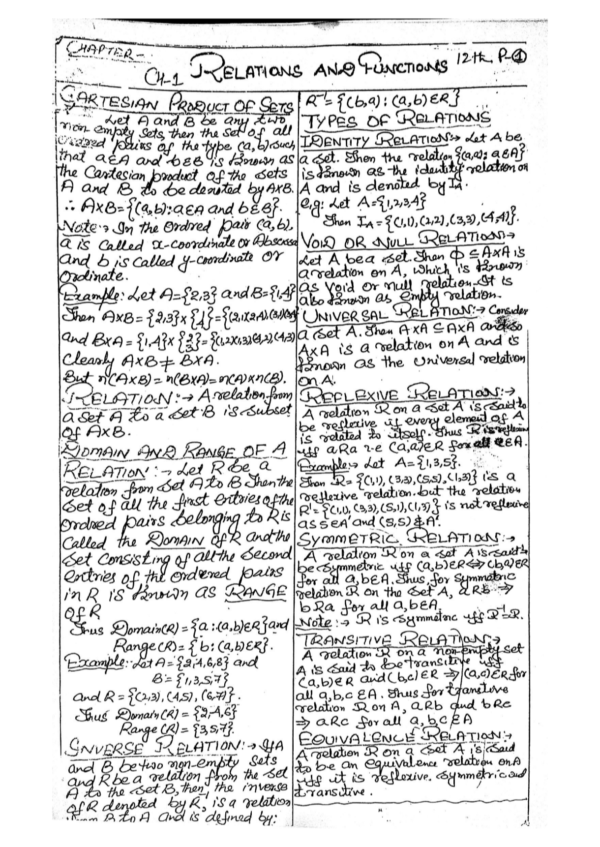 CHAPTER-
CH-1 RELATIONS AND FUNCTIONS 12th P-1
CARTESIAN PRODUCT OF SETS
→ Let A and B be any two
non empty sets, then the set of all
ordered pairs of the type (a,b) such
that a∈A and b∈B is known as
the Cartesian product of the sets
A and B to be denoted by AxB.
∴ AxB={(a,b):a∈A and b∈B}.
Note:→ In the Ordred pair (a,b),
a is Called x-coordinate or Abscissa
and b is called y-coordinate or
Ordinate.
Example: Let A={2,3} and B={1,4}
Then AxB={2,3}x{1,4}={(2,1)(2,4)(3,1)(3,4)}
and BxA={1,4}x{2,3}={(1,2)(1,3)(4,2)(4,3)}
Clearly AxB≠BxA.
But n(AxB)=n(BxA)=n(A)xn(B).
RELATION:→ A relation from
a set A to a set B is subset
of AxB.
DOMAIN AND RANGE OF A
RELATION:→ Let R be a
relation from set A to B Then the
set of all the first entries of the
Ordred pairs belonging to R is
Called the DOMAIN of R and the
set consisting of all the second
entries of the ordered pairs
in R is known as RANGE
of R
Thus Domain(R)={a:(a,b)∈R} and
Range(R)={b:(a,b)∈R}.
Example: Let A={2,4,6,8} and
B={1,3,5,7}
and R={(2,3),(4,5),(6,7)}.
Thus Domain(R)={2,4,6}
Range(R)={3,5,7}.
INVERSE RELATION:→ If A
and B be two non-empty sets
and R be a relation from the set
A to the set B, then, the inverse
of R denoted by R, is a relation
from B to A and is defined by:
R⁻¹={(b,a):(a,b)∈R}
TYPES OF RELATIONS
IDENTITY RELATION:→ Let A be
a set. Then the relation {(a,a): a∈A}
is known as the identity relation on
A and is denoted by IA.
e.g: Let A={1,2,3,4}
Then IA={(1,1),(2,2),(3,3),(4,4)}.
VOID OR NULL RELATION→
Let A be a set. Then Φ ⊆ AxA is
a relation on A, which is known
as Void or null relation. It is
also known as empty relation.
UNIVERSAL RELATION:→ Consider
a set A. Then AxA ⊆ AxA and so
AxA is a relation on A and is
known as the universal relation
on A.
REFLEXIVE RELATION:→
A relation R on a set A is said to
be reflexive if every element of A
is related to itself. Thus R is reflexive
iff aRa i.e (a,a)∈R for all a∈A.
Example:→ Let A={1,3,5}.
Then R={(1,1),(3,3),(5,5),(1,3)} is a
reflexive relation. but the relation
R'={(1,1),(3,3),(5,1),(1,3)} is not reflexive
as 5∈A and (5,5)∉R'.
SYMMETRIC RELATION:→
A relation R on a set A is said to
be symmetric iff (a,b)∈R⇔(b,a)∈R
for all a,b∈A. Thus, for symmetric
relation R on the set A, aRb ⇒
bRa for all a,b∈A.
Note:→ R is symmetric iff R⁻¹=R.
TRANSITIVE RELATION:→
A relation R on a non-empty set
A is said to be transitive iff
(a,b)∈R and (b,c)∈R ⇒ (a,c)∈R for
all a,b,c∈A. Thus for transitive
relation R on A, aRb and bRc
⇒ aRc for all a,b,c∈A
EQUIVALENCE RELATION:→
A relation R on a set A is said
to be an equivalence relation on A
iff it is reflexive, symmetric and
transitive.